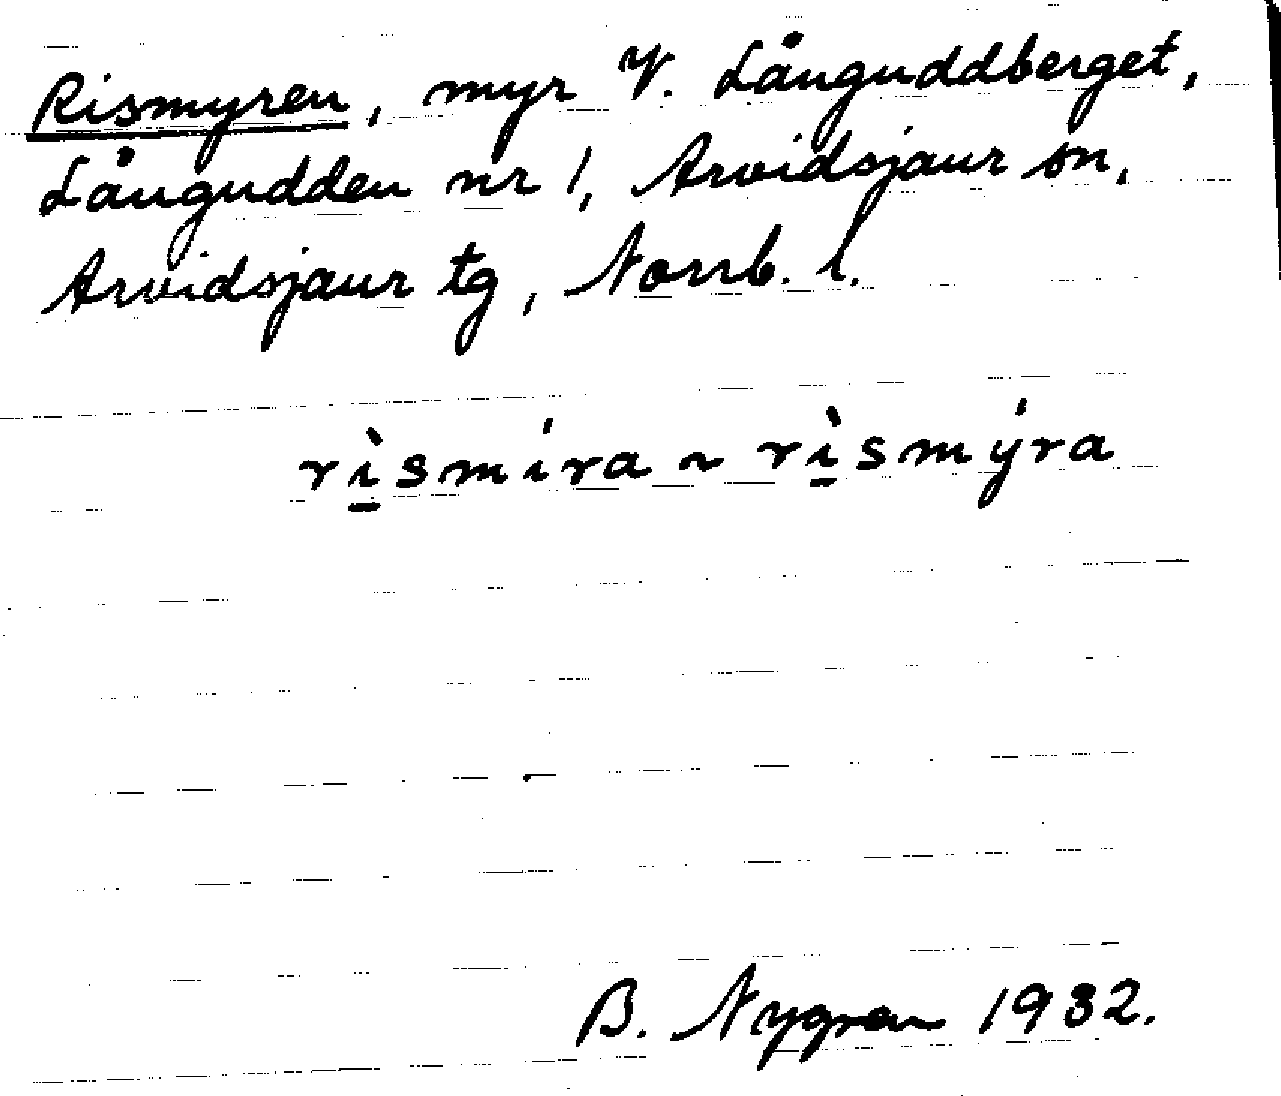 Rismyren, myr V. Långuddberget,
Långudden nr 1, Arvidsjaur sn,
Arvidsjaur tg, Norrb. l.
rı̱̀smíra ~ rı̱̀smýra
B. Nygren 1932.